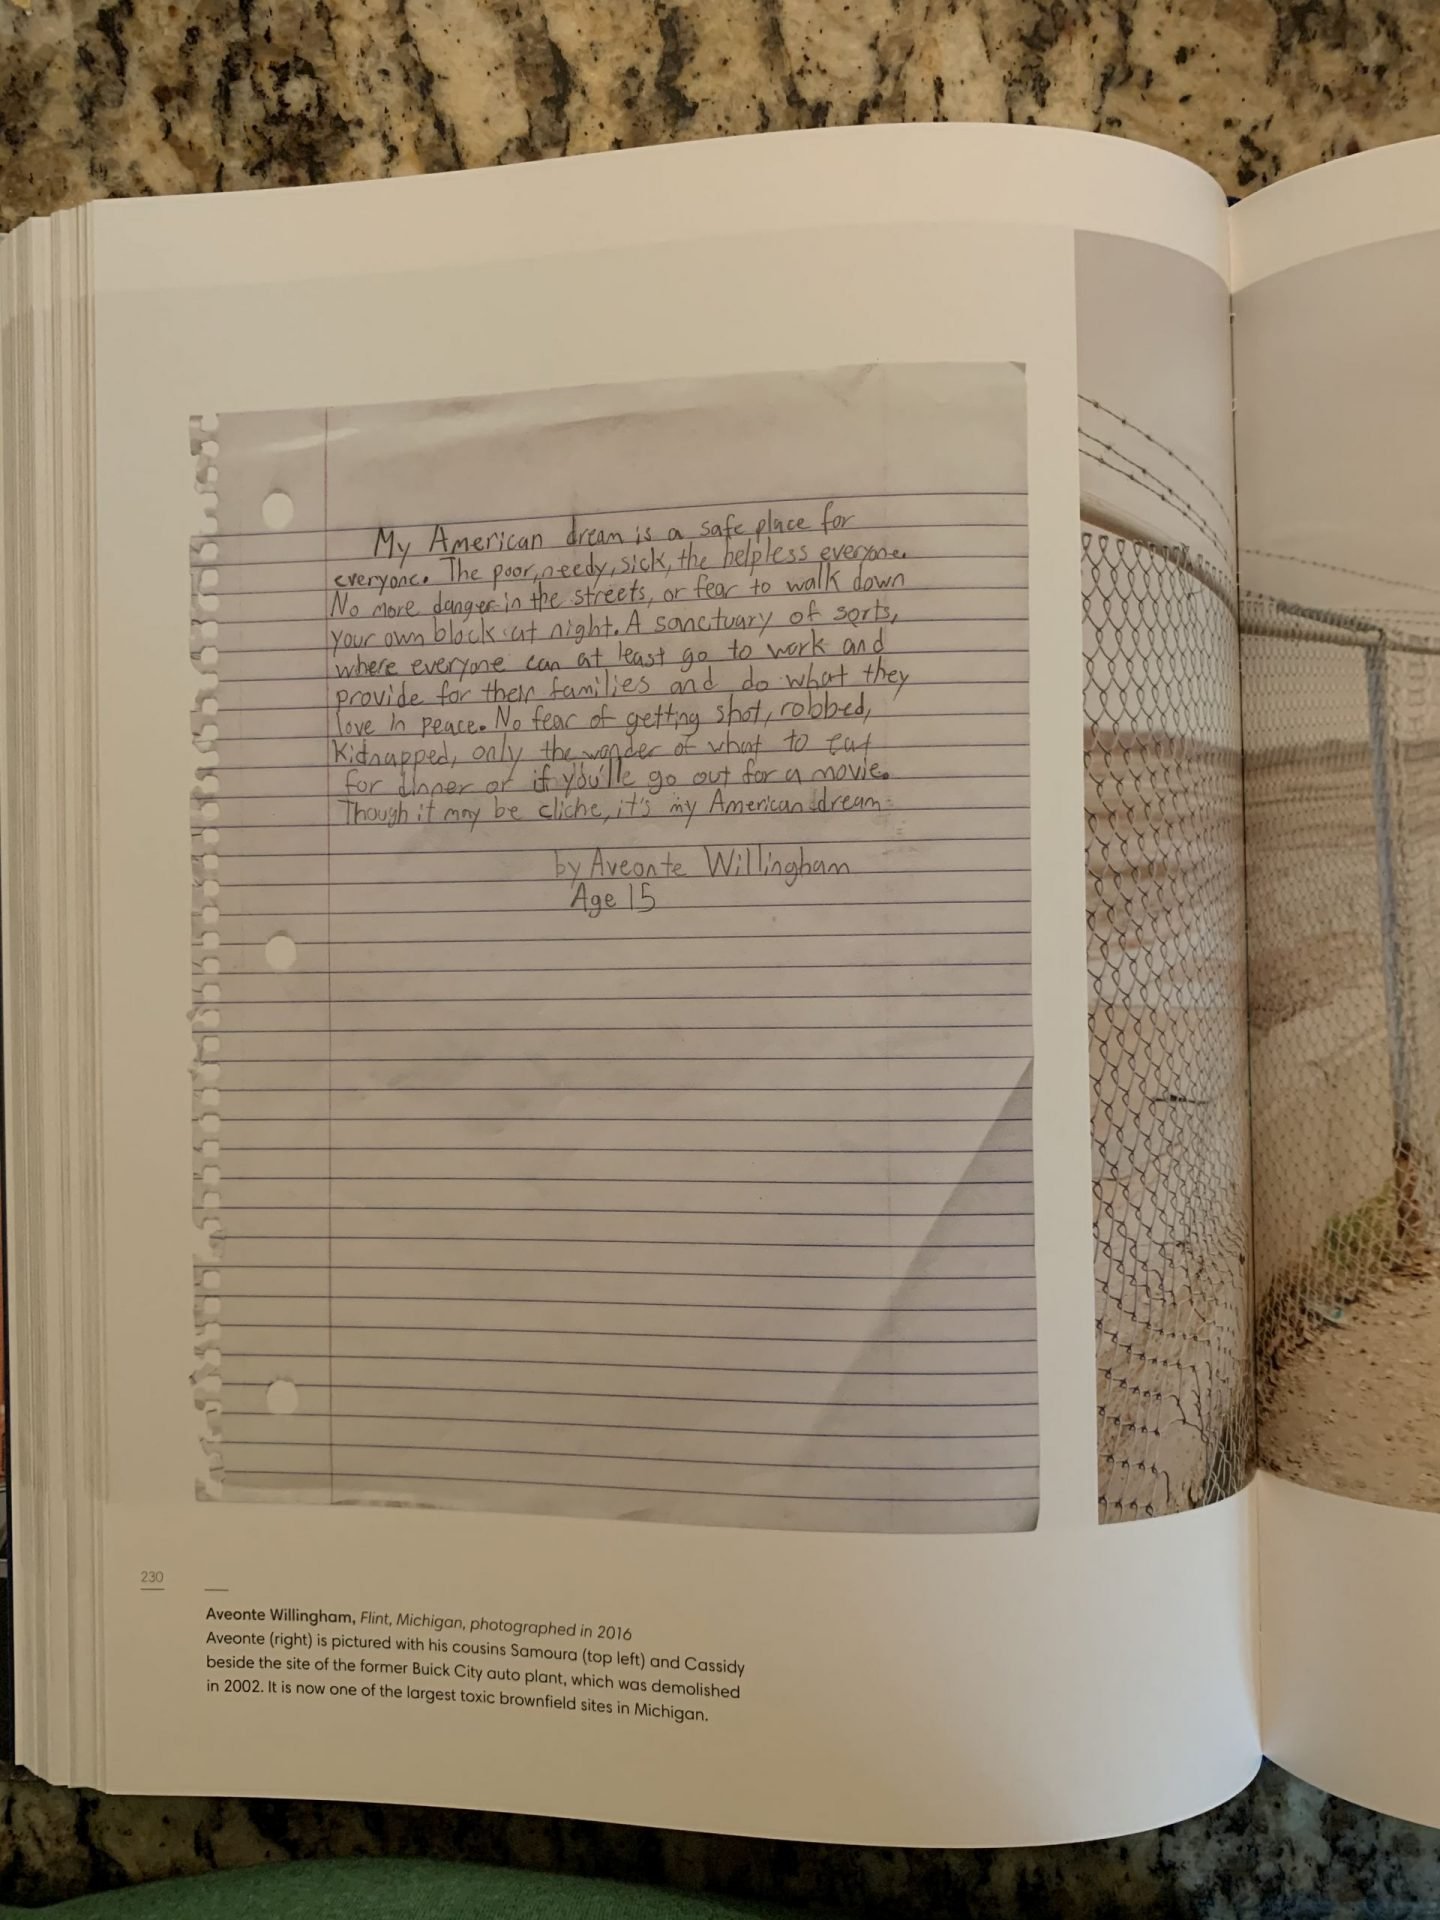 My American dream is a safe place for
everyone. The poor, needy, sick, the helpless everyone.
No more danger in the streets, or fear to walk down
your own block at night. A sanctuary of sorts,
where everyone can at least go to work and
provide for their families and do what they
love in peace. No fear of getting shot, robbed,
kidnapped, only the wonder of what to eat
for dinner or if you'lle go out for a movie.
Though it may be cliche, it's my American dream.
by Aveonte Willingham
Age 15
230
Aveonte Willingham, Flint, Michigan, photographed in 2016
Aveonte (right) is pictured with his cousins Samoura (top left) and Cassidy
beside the site of the former Buick City auto plant, which was demolished
in 2002. It is now one of the largest toxic brownfield sites in Michigan.